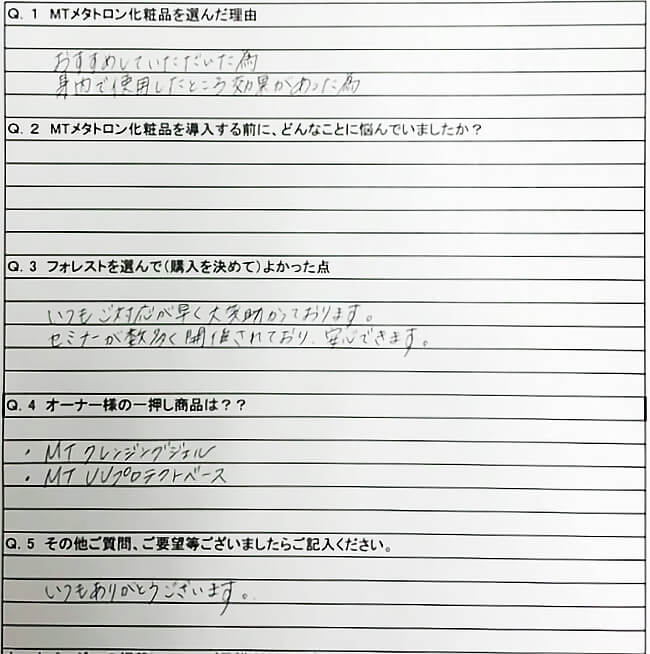 Q.1 MTメタトロン化粧品を選んだ理由
おすすめしていただいた為
身内で使用したところ効果があった為
Q.2 MTメタトロン化粧品を導入する前に、どんなことに悩んでいましたか？
Q.3 フォレストを選んで（購入を決めて）よかった点
いつもご対応が早く大変助かっております。
セミナーが数多く開催されており、安心できます。
Q.4 オーナー様の一押し商品は？？
・MT クレンジングジェル
・MT UVプロテクトベース
Q.5 その他ご質問、ご要望等ございましたらご記入ください。
いつもありがとうございます。